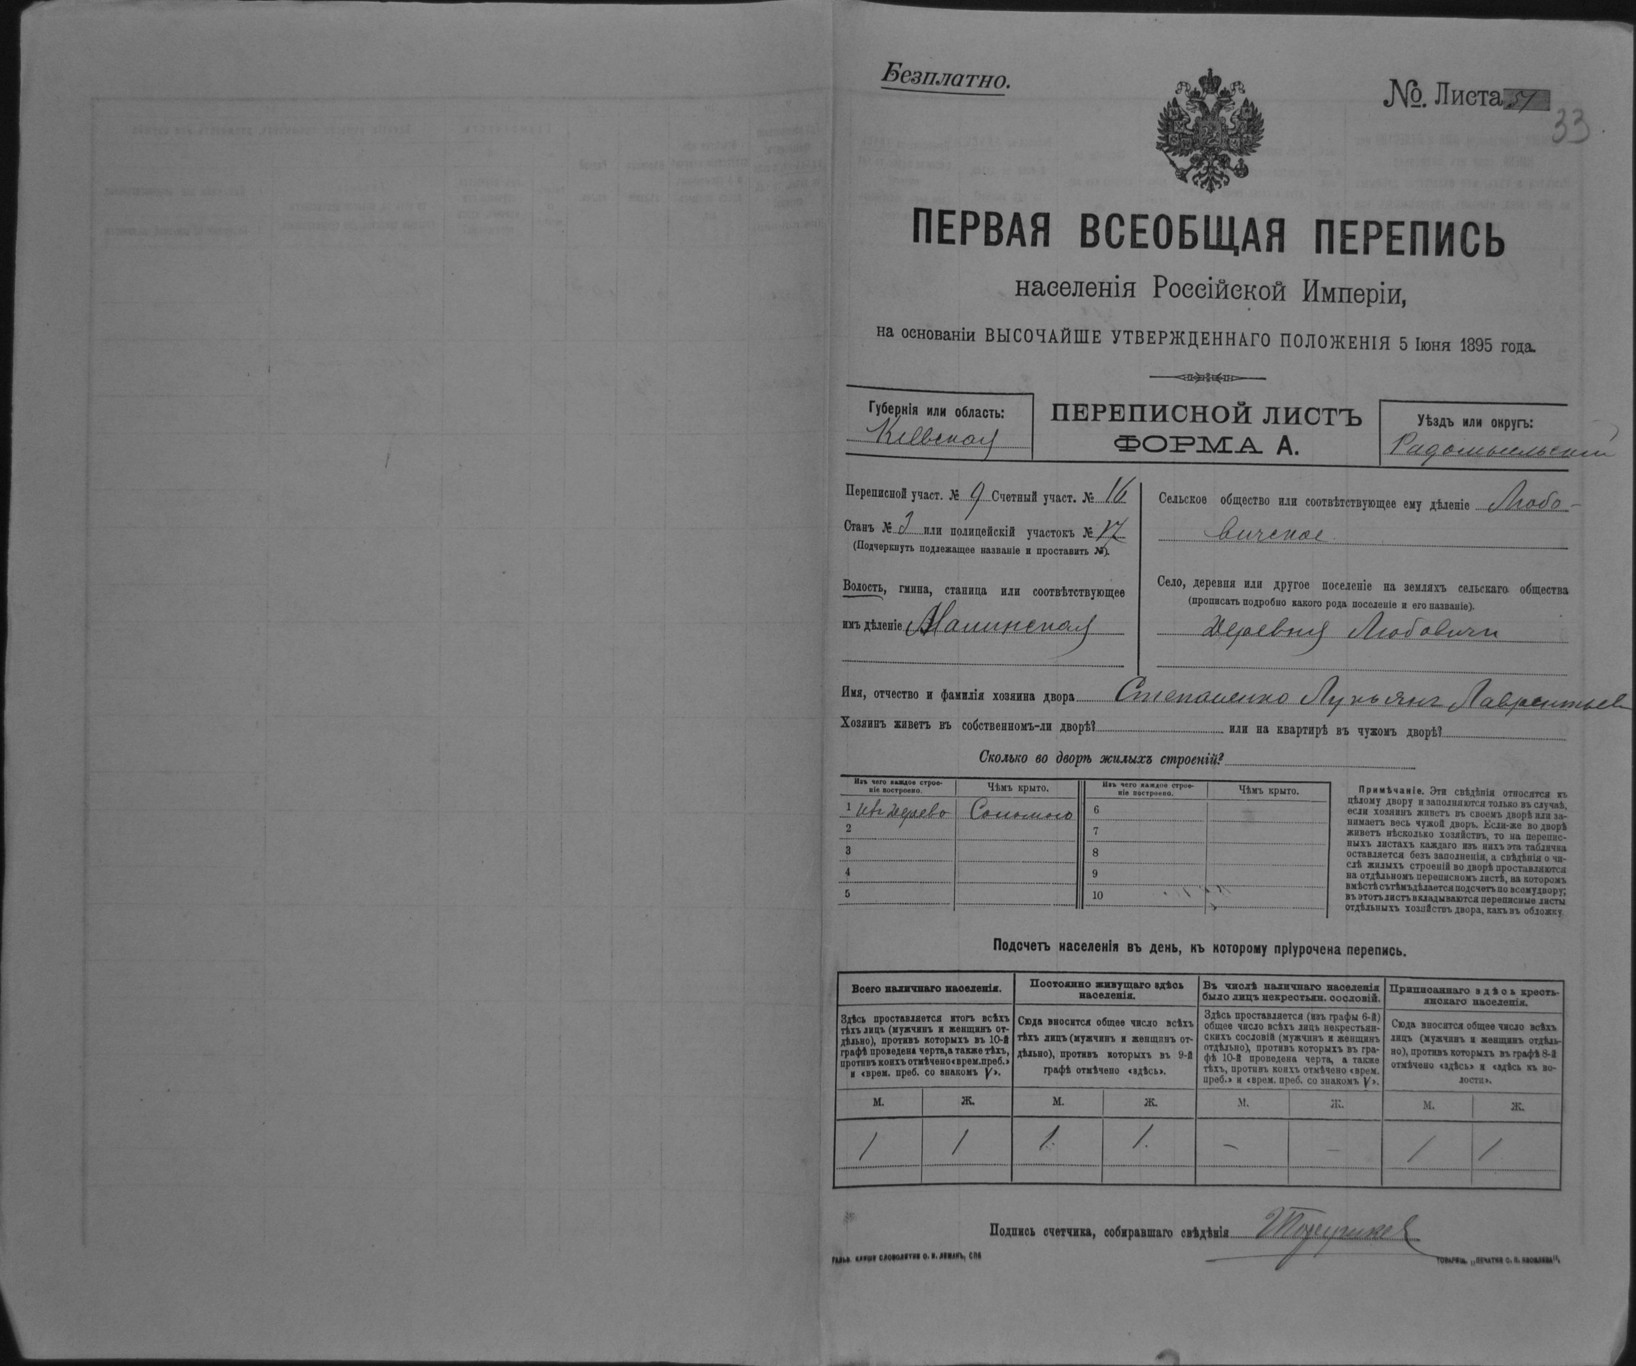 Безплатно.
№. Листа 51
33
ПЕРВАЯ ВСЕОБЩАЯ ПЕРЕПИСЬ
населенія Россійской Имперіи,
на основаніи ВЫСОЧАЙШЕ УТВЕРЖДЕННАГО ПОЛОЖЕНІЯ 5 Іюня 1895 года.
Губернія или область:
Кіевская
ПЕРЕПИСНОЙ ЛИСТЪ
ФОРМА А.
Уѣздъ или округъ:
Радомысльскій
Переписной участ. № 9 Счетный участ. № 16
Станъ № 3 или полицейскій участокъ № 17
(Подчеркнуть подлежащее названіе и проставить №).
Волость, гмина, станица или соотвѣтствующее
имъ дѣленіе Малинская
Сельское общество или соотвѣтствующее ему дѣленіе Любо-
вичское
Село, деревня или другое поселеніе на земляхъ сельскаго общества
(прописать подробно какого рода поселеніе и его названіе).
Деревня Любовичи
Имя, отчество и фамилія хозяина двора Степаненко Лукьянъ Лаврентьев
Хозяинъ живетъ въ собственномъ-ли дворѣ? или на квартирѣ въ чужомъ дворѣ?
Сколько во дворѣ жилыхъ строеній?
Изъ чего каждое строе-
ніе построено.
Чѣмъ крыто.
Изъ чего каждое строе-
ніе построено.
Чѣмъ крыто.
1 изъ дерево Соломою
2
3
4
5
6
7
8
9
10
Примѣчаніе. Эти свѣдѣнія относятся къ
цѣлому двору и заполняются только въ случаѣ,
если хозяинъ живетъ въ своемъ дворѣ или за-
нимаетъ весь чужой дворъ. Если-же во дворѣ
живетъ нѣсколько хозяйствъ, то на перепис-
ныхъ листахъ каждаго изъ нихъ эта табличка
оставляется безъ заполненія, а свѣдѣнія о чи-
слѣ жилыхъ строеній во дворѣ проставляются
на отдѣльномъ переписномъ листѣ, на которомъ
вмѣстѣ съ тѣмъ дѣлается подсчетъ по всему двору;
въ этотъ листъ вкладываются переписные листы
отдѣльныхъ хозяйствъ двора, какъ въ обложку.
Подсчетъ населенія въ день, къ которому пріурочена перепись.
Всего наличнаго населенія.
Здѣсь проставляется итогъ всѣхъ
тѣхъ лицъ (мужчинъ и женщинъ от-
дѣльно), противъ которыхъ въ 10-й
графѣ проведена черта, а также тѣхъ,
противъ коихъ отмѣчено «врем. преб.»
и «врем. преб. со знакомъ V».
Постоянно живущаго здѣсь
населенія.
Сюда вносится общее число всѣхъ
тѣхъ лицъ (мужчинъ и женщинъ от-
дѣльно), противъ которыхъ въ 9-й
графѣ отмѣчено «здѣсь».
Въ числѣ наличнаго населенія
было лицъ некрестьян. сословій.
Здѣсь проставляется (изъ графы 6-й)
общее число всѣхъ лицъ некрестьян-
скихъ сословій (мужчинъ и женщинъ
отдѣльно), противъ которыхъ въ гра-
фѣ 10-й проведена черта, а также
тѣхъ, противъ коихъ отмѣчено «врем.
преб.» и «врем. преб. со знакомъ V».
Приписаннаго здѣсь кресть-
янскаго населенія.
Сюда вносится общее число всѣхъ
лицъ (мужчинъ и женщинъ отдѣль-
но), противъ которыхъ въ графѣ 8-й
отмѣчено «здѣсь» и «здѣсь къ во-
лости».
М. Ж. М. Ж. М. Ж. М. Ж.
1 1 1. 1. – – 1 1
Подпись счетчика, собиравшаго свѣдѣнія
ГАЛЬВ. КЛИШЕ СЛОВОЛИТНИ О. И. ЛЕМАНЪ, СПБ
ТОВАРИЩ. „ПЕЧАТНЯ С. П. ЯКОВЛЕВА“,